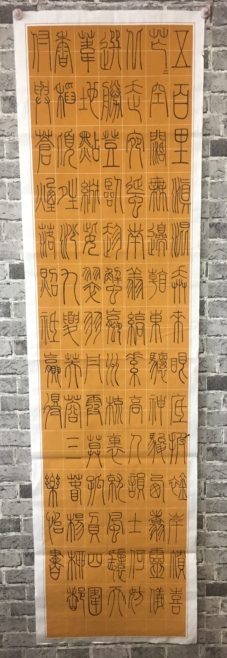 五百里滇池奔來眼底披襟岸幘喜
茫茫空闊無邊看東驤神駿西翥靈儀
北走蜿蜒南翔縞素高人韻士何妨
選勝登臨趁蟹嶼螺洲梳裹就風鬟
葦地點綴些翠羽丹霞莫孤負四圍
香稻萬頃晴沙九夏芙蓉三春楊柳
書